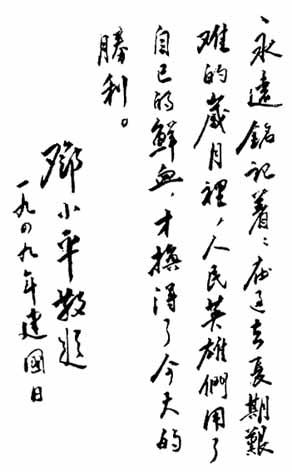 永远銘記着：在过去長期艱
难的歲月裡，人民英雄們用了
自己的鮮血，才換得了今天的
勝利。
鄧小平敬題
一九四九年建國日